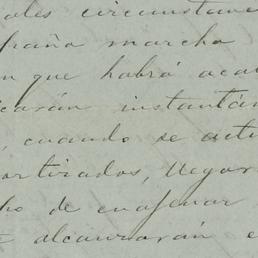 ales circunstanc
spaña marcha
n que habrá aca
icarán instantán
, cuando se acti
artirados, llegar
ho de enagenar
alcanzarán e